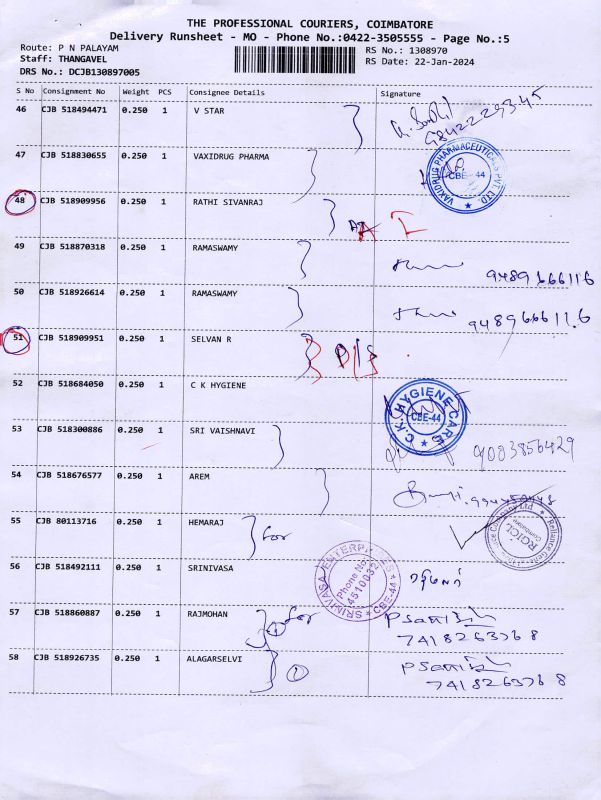 THE PROFESSIONAL COURIERS, COIMBATORE
Delivery Runsheet - MO - Phone No.:0422-3505555 - Page No.:5
Route: P N PALAYAM
Staff: THANGAVEL
DRS No.: DCJB130897005
RS No.: 1308970
RS Date: 22-Jan-2024
S No Consignment No Weight PCS Consignee Details Signature
46 CJB 518494471 0.250 1 V STAR
9842229345
47 CJB 518830655 0.250 1 VAXIDRUG PHARMA
VAXIDRUG PHARMACEUTICALS PVT. LTD. CBE-44
48 CJB 518909956 0.250 1 RATHI SIVANRAJ
49 CJB 518870318 0.250 1 RAMASWAMY
9489666116
50 CJB 518926614 0.250 1 RAMASWAMY
9489666116
51 CJB 518909951 0.250 1 SELVAN R
D/S
52 CJB 518684050 0.250 1 C K HYGIENE
C.K. HYGIENE CARE CBE-44
53 CJB 518300886 0.250 1 SRI VAISHNAVI
9003856429
54 CJB 518676577 0.250 1 AREM
55 CJB 80113716 0.250 1 HEMARAJ for
RGICL
Coimbatore
56 CJB 518492111 0.250 1 SRINIVASA
SRINIVASA ENTERPRISES CBE-44
Phone No
4510032
57 CJB 518860887 0.250 1 RAJMOHAN for
7418263768
58 CJB 518926735 0.250 1 ALAGARSELVI 1
7418263768